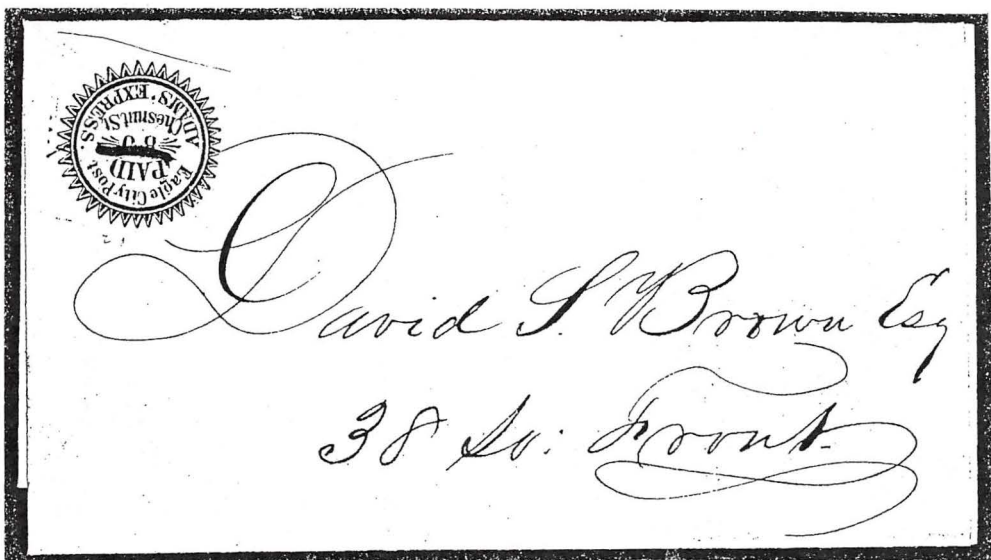 Eagle City Post.
PAID
Chesnut St
ADAMS' EXPRESS.
David S. Brown Esq
38 So: Front